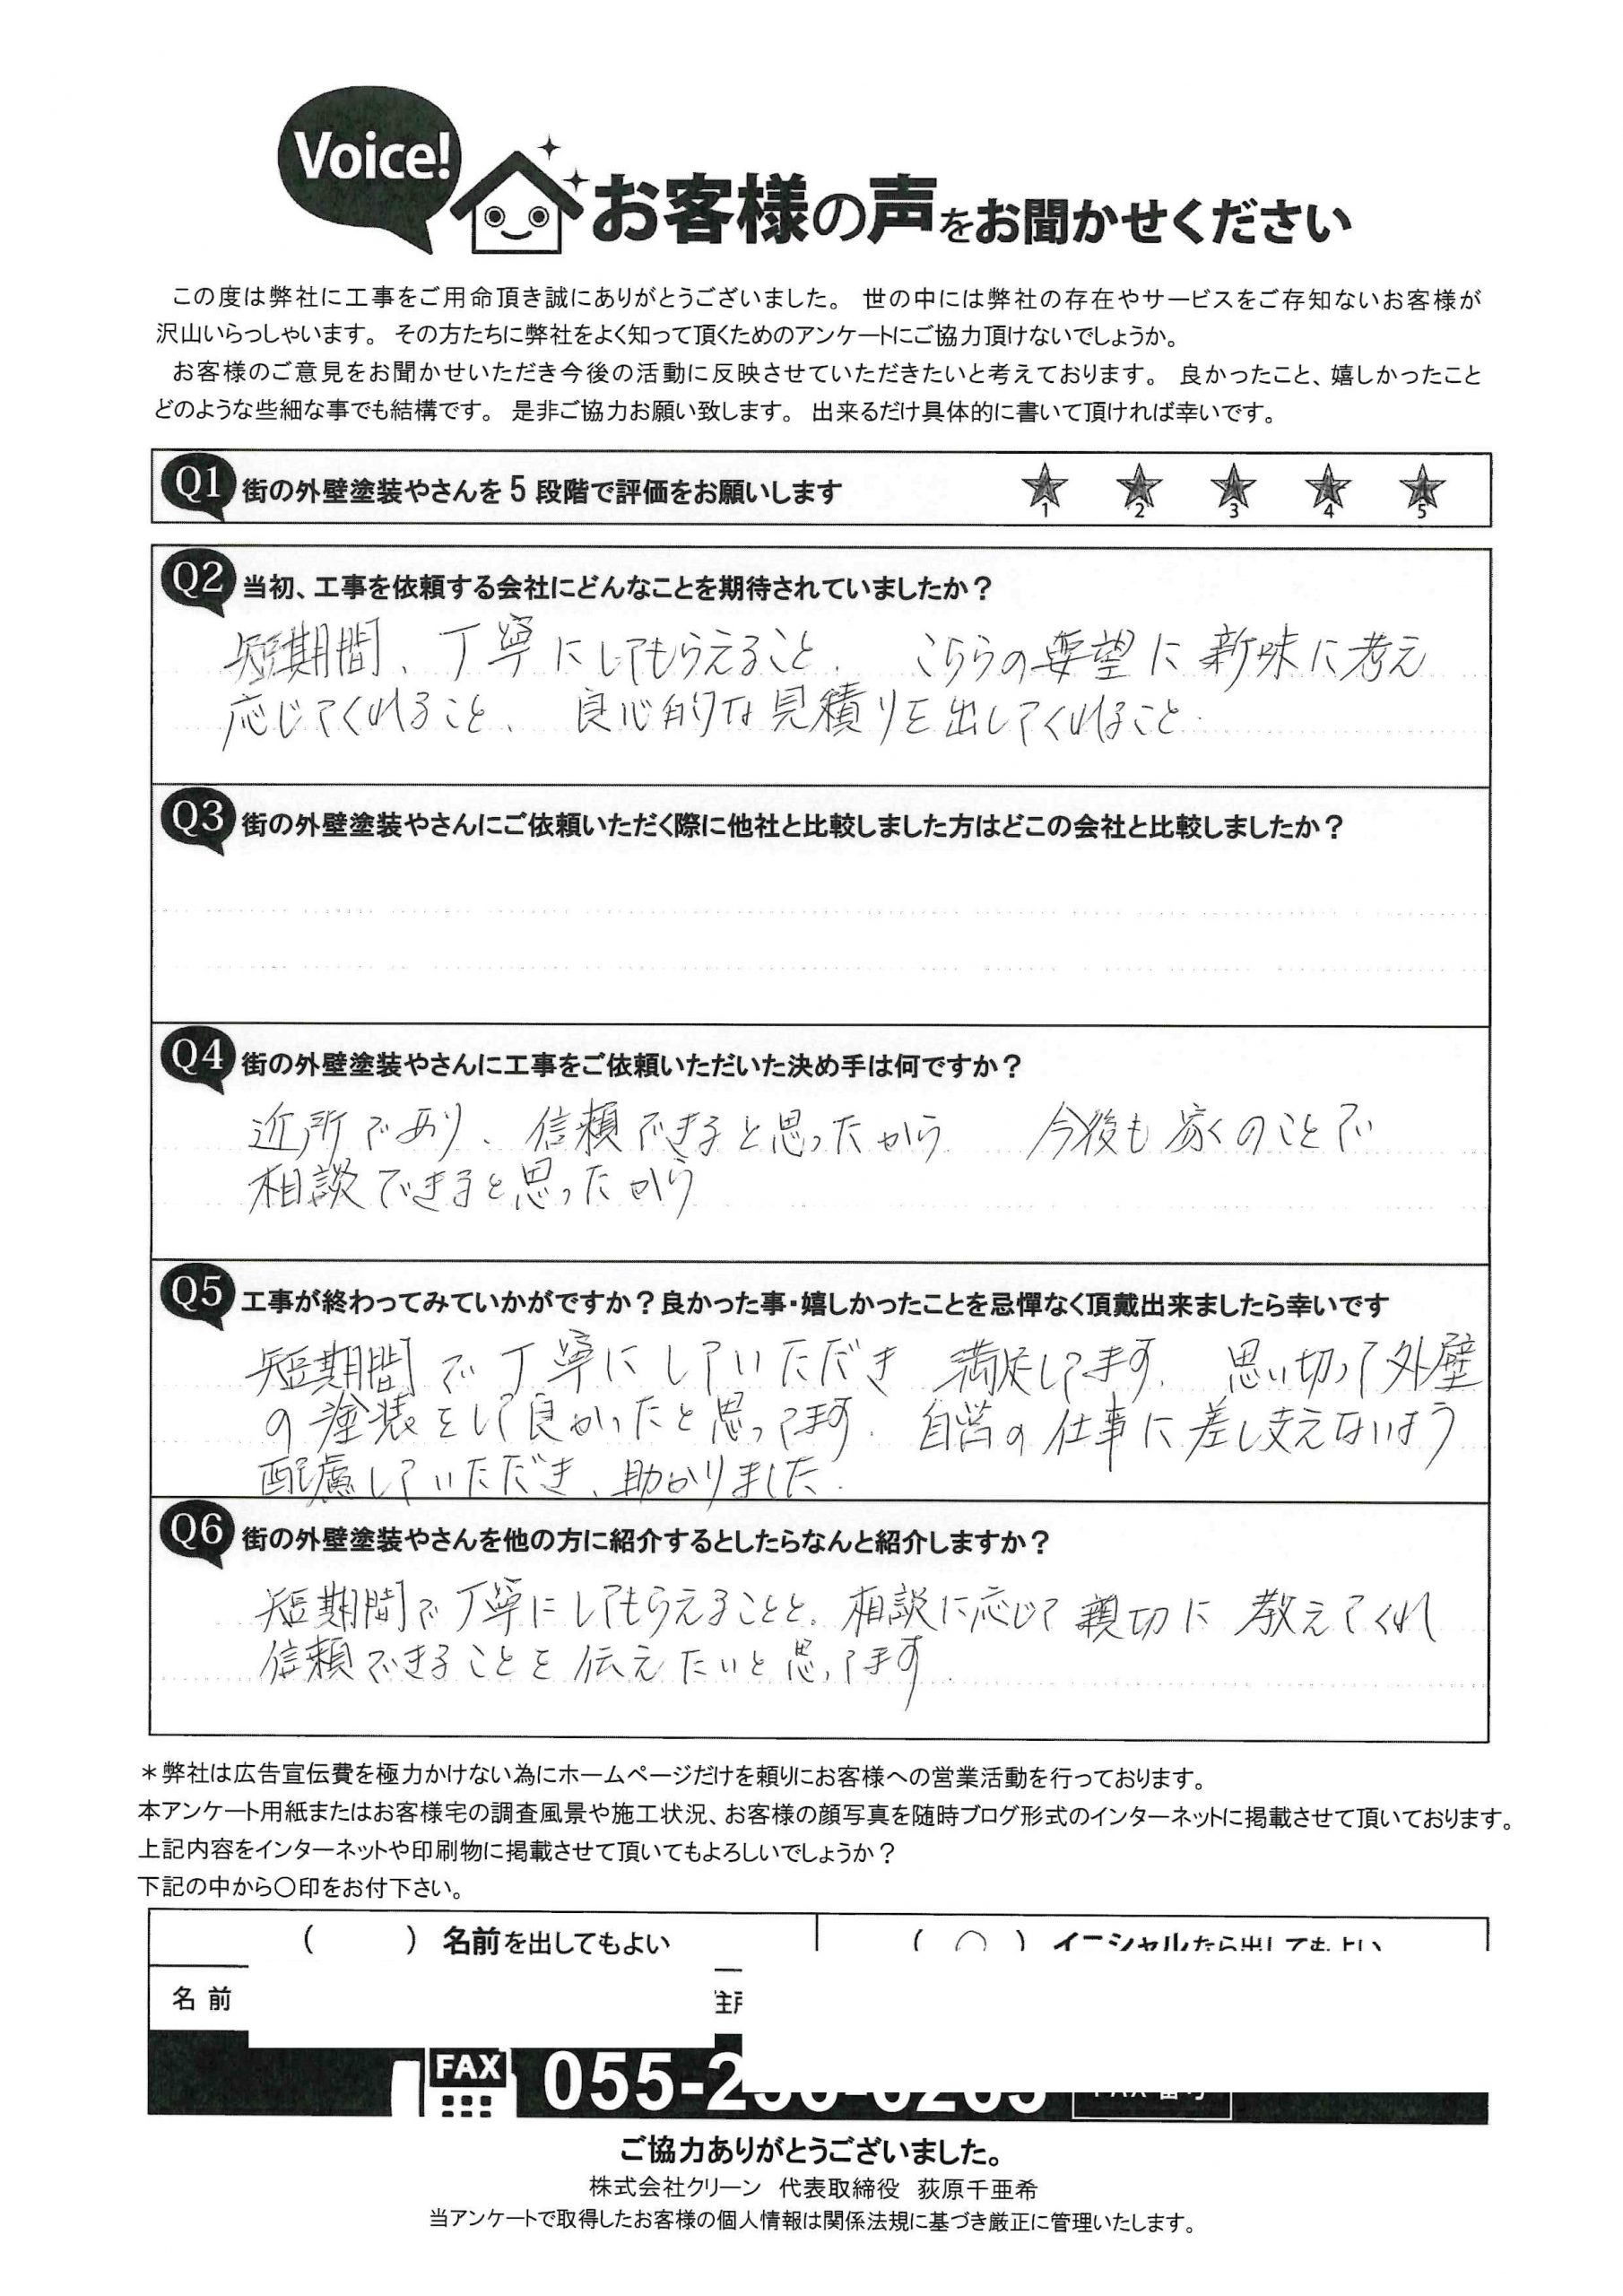 Voice!
お客様の声をお聞かせください
この度は弊社に工事をご用命頂き誠にありがとうございました。 世の中には弊社の存在やサービスをご存知ないお客様が
沢山いらっしゃいます。 その方たちに弊社をよく知って頂くためのアンケートにご協力頂けないでしょうか。
お客様のご意見をお聞かせいただき今後の活動に反映させていただきたいと考えております。 良かったこと、嬉しかったこと
どのような些細な事でも結構です。 是非ご協力お願い致します。 出来るだけ具体的に書いて頂ければ幸いです。
Q1 街の外壁塗装やさんを5段階で評価をお願いします
1 2 3 4 5
Q2 当初、工事を依頼する会社にどんなことを期待されていましたか？
短期間、丁寧にしてもらえること、 こちらの要望に新味に考え
応じてくれること、 良心的な見積りを出してくれること.
Q3 街の外壁塗装やさんにご依頼いただく際に他社と比較しました方はどこの会社と比較しましたか？
Q4 街の外壁塗装やさんに工事をご依頼いただいた決め手は何ですか？
近所であり、信頼できると思ったから 今後も家のことで
相談できると思ったから
Q5 工事が終わってみていかがですか？良かった事・嬉しかったことを忌憚なく頂戴出来ましたら幸いです
短期間で丁寧にしていただき 満足してます. 思い切って外壁
の塗装をして良かったと思ってます. 自営の仕事に差し支えないよう
配慮していただき、助かりました.
Q6 街の外壁塗装やさんを他の方に紹介するとしたらなんと紹介しますか？
短期間で丁寧にしてもらえることと、相談に応じて親切に教えてくれ
信頼できることを伝えたいと思ってます
＊弊社は広告宣伝費を極力かけない為にホームページだけを頼りにお客様への営業活動を行っております。
本アンケート用紙またはお客様宅の調査風景や施工状況、お客様の顔写真を随時ブログ形式のインターネットに掲載させて頂いております。
上記内容をインターネットや印刷物に掲載させて頂いてもよろしいでしょうか？
下記の中から〇印をお付下さい。
（ ）名前を出してもよい （〇）イニシャルなら出してもよい
名前
FAX 055-2
ご協力ありがとうございました。
株式会社クリーン 代表取締役 荻原千亜希
当アンケートで取得したお客様の個人情報は関係法規に基づき厳正に管理いたします。